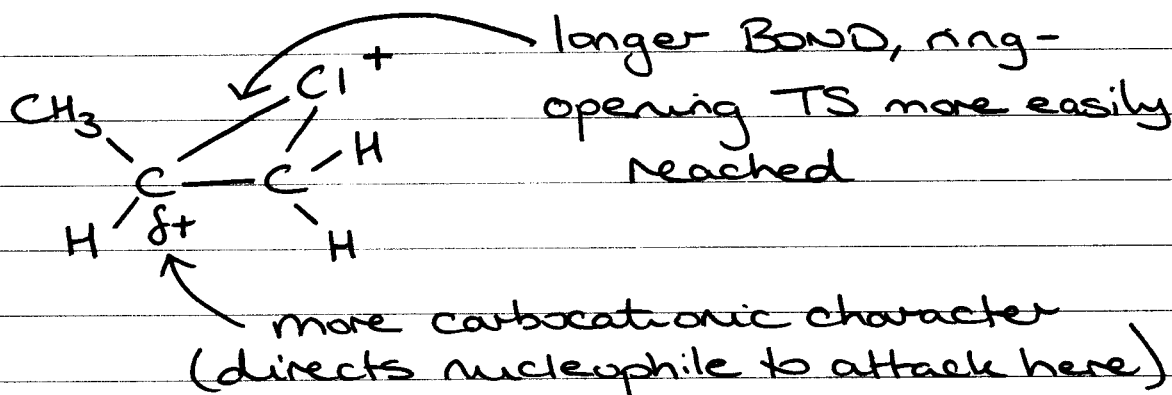 longer BOND, ring-
Cl +
opening TS more easily
CH3
reached
H
C — C
H
δ+
H
more carbocationic character
(directs nucleophile to attack here)